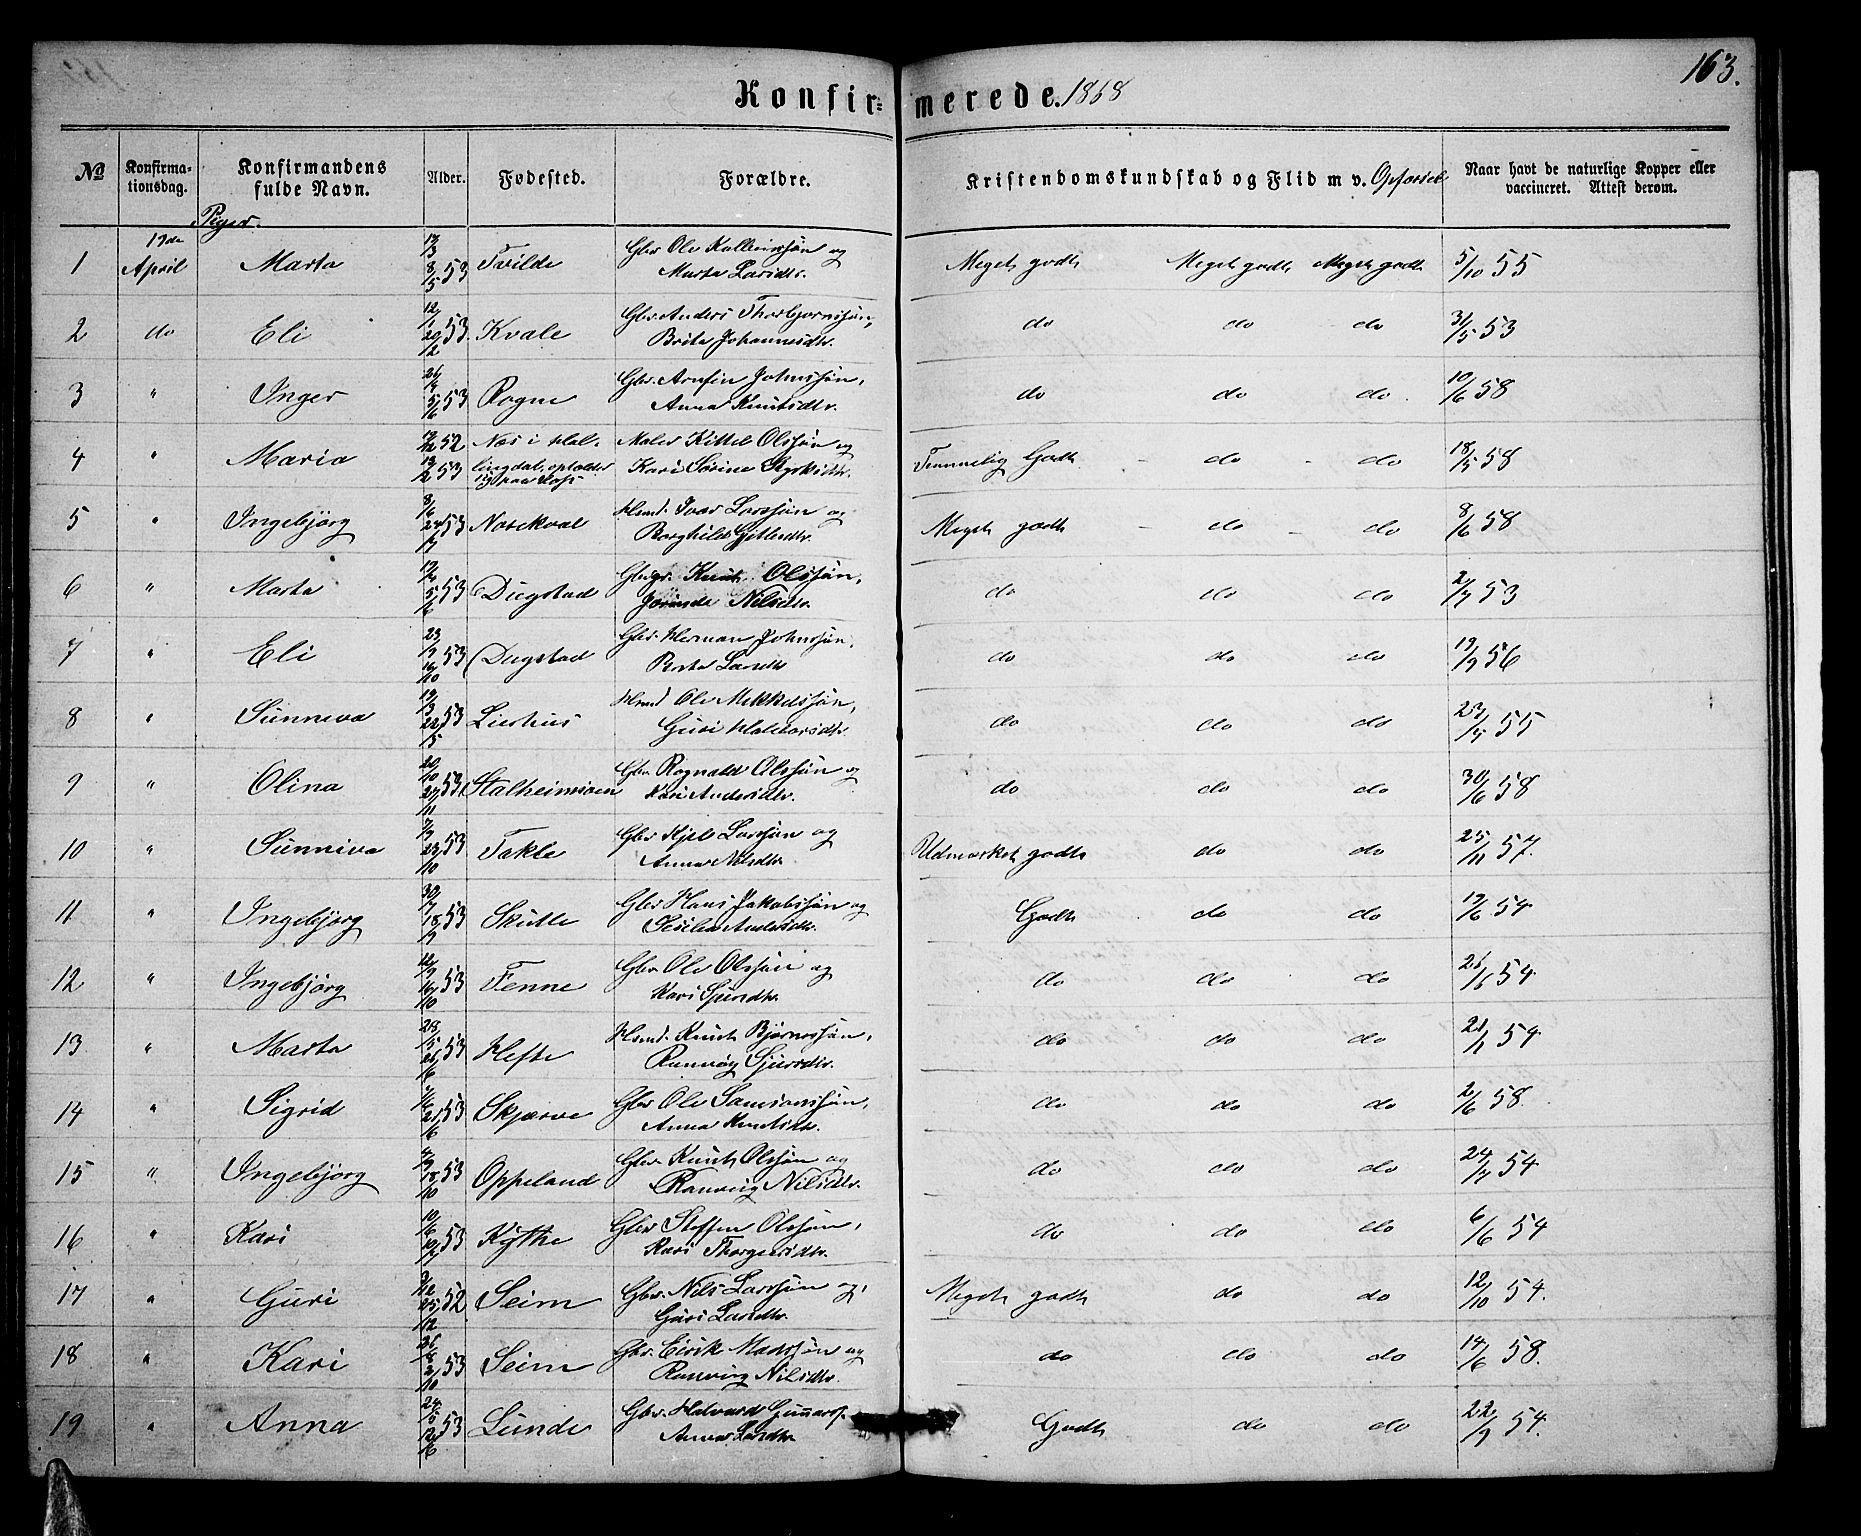 163.
Konfir- merede. 1868
No
Konfirma-
tionsdag.
Konfirmandens
fulde Navn.
Alder.
Fødested.
Forældre.
Kristendomskundskab og Flid m v. Opførsel
Naar havt de naturlige Kopper eller
vaccineret. Attest derom.
Piger.
1 17de April Marta 53 Tvilde Gbr Ole Kolbeinssøn og
Marta Larsdtr. Meget godt Meget godt Meget godt 5/10 55
2 do Eli 12/1 20/2 53. Kvale Gbr. Anders Thorbjørnssøn,
Brita Johannesdtr. do do do 31/5 53
3 " Inger 5/6 53 Rogne Gbr. Arnfin Johnssøn,
Anna Knutsdtr. do do do 10/6 58
4 " Maria 52 13/2 53 Næs i Hal-
lingdal, opholder
sig paa Voss Maler Kittel Olssøn og
Kari Sørine Styksdtr. Temmelig Godt do do 18/5 58
5 " Ingebjörg 53 Næsekval Hsmd. Ivar Larssøn og
Borghild Gjertsdtr. Meget godt do do 8/6 58
6 " Marta 53 Dugstad Gbr. Knut Olssøn,
Jorinda Nilsdtr. do do do 2/7 53
7 " Eli 53 Dugstad Gbr. Herman Johnssøn,
Brita Larsdtr do do do 19/9 56
8 " Sünneva 53 Liashus Hsmd Ole Mikkelssøn,
Guri Halvorsdtr. do do do 55
9 " Olina 53 Stalheimsøen Gbr Rognald Olssøn og
Kari Andersdtr. do do do 30/6 58
10 " Sünniva 53 Takle Gbr. Kjel Larssøn og
Anna Nilsdtr. Udmærket godt do do 25/11 57.
11 " Ingebjörg 53 Skutle Gbr Hans Jakobssøn og
Sesilia Andersdtr. Godt do do 19/6 54
12 " Ingebjörg 53 Fenne Gbr Ole Olssøn og
Kari Sjursdtr. do do do 54
13 " Marta 53 Hefte Hsmd. Knut Bjørnssøn,
Ranvøig Sjursdtr. do do do 54
14 " Sigrid 21/6 53 Skjærve Gbr Ole Samsonssøn,
Anna Knutsdtr. do do do 2/6 58.
15 " Ingebjörg 18/10 53 Oppeland Gbr. Knut Olssøn og
Ranveig Nilsdtr. do do do 24/7 54
16 " Kari 10/6 53 Kythe Gbr Steffen Olssøn,
Kari Thorgersdtr. do do do 6/6 54
17 " Guri 3/12 25/12 52 Seim Gbr. Nils Larssøn og,
Guri Larsdtr. Meget godt do do 12/10 54.
18 " Kari 2/10 53 Seim Gbr. Eirik Madssøn og
Ranveig Nilsdtr. do do do 14/6 58.
19 " Anna 24/5 12/6 53 Lunde Gbr. Halvard Gunnarss.
Anna Larsdtr Godt do do 22/9 54.